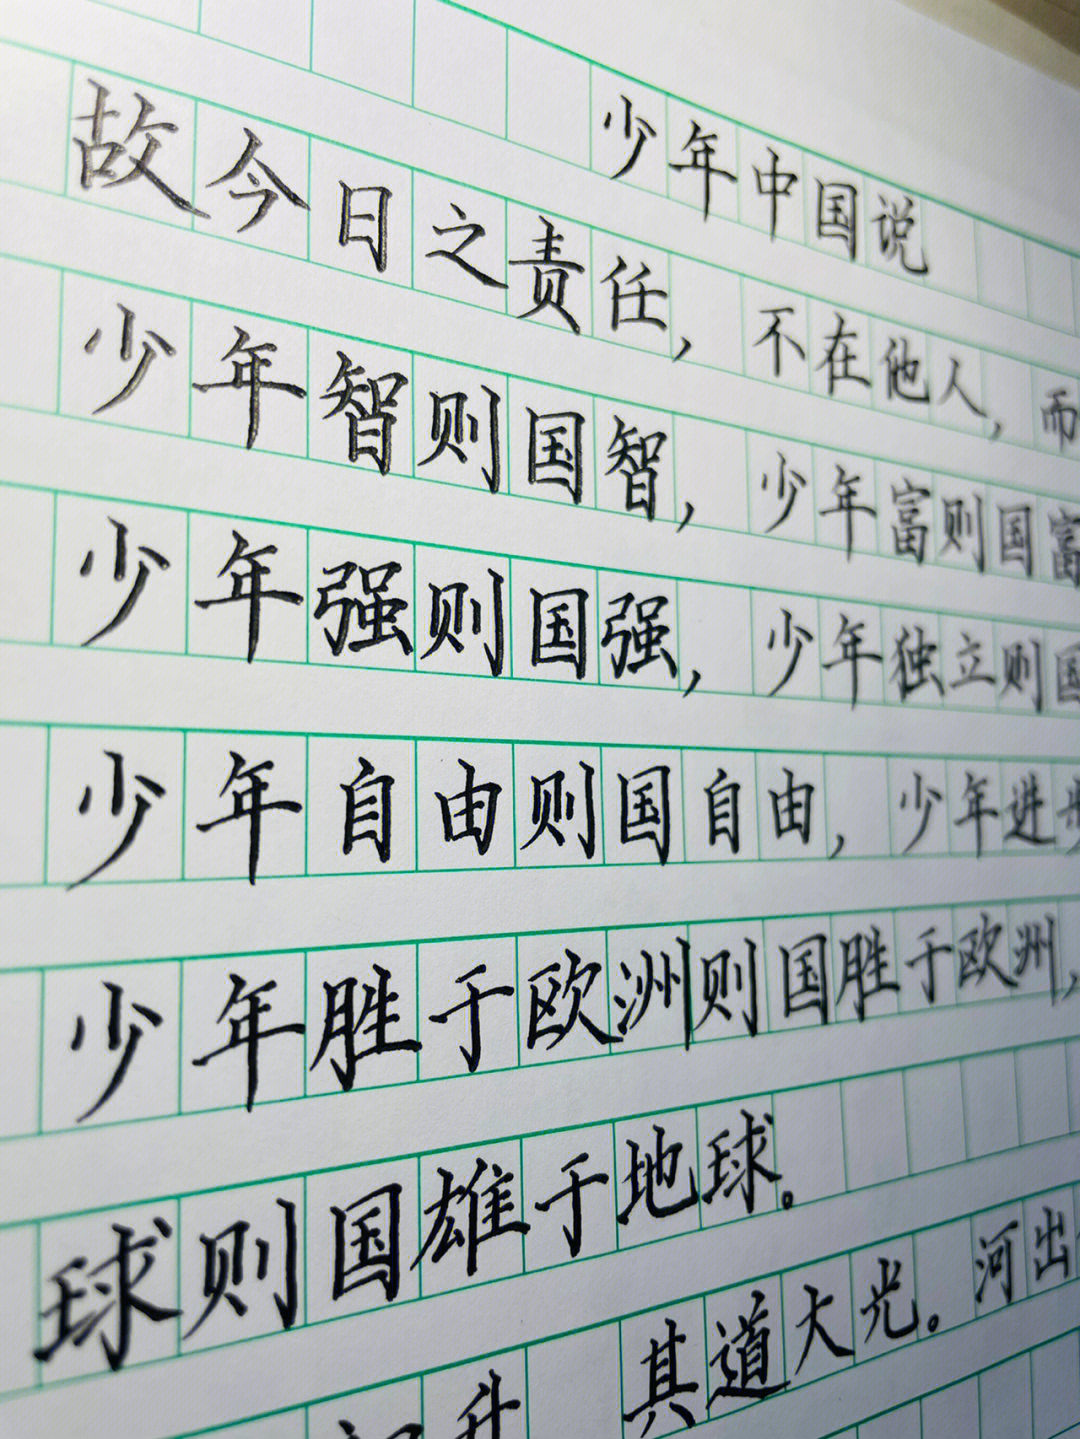 少年中国说
故今日之责任，不在他人，而
少年智则国智，少年富则国富
少年强则国强，少年独立则国
少年自由则国自由，少年进步
少年胜于欧洲则国胜于欧洲，
球则国雄于地球。
升 其道大光。河出